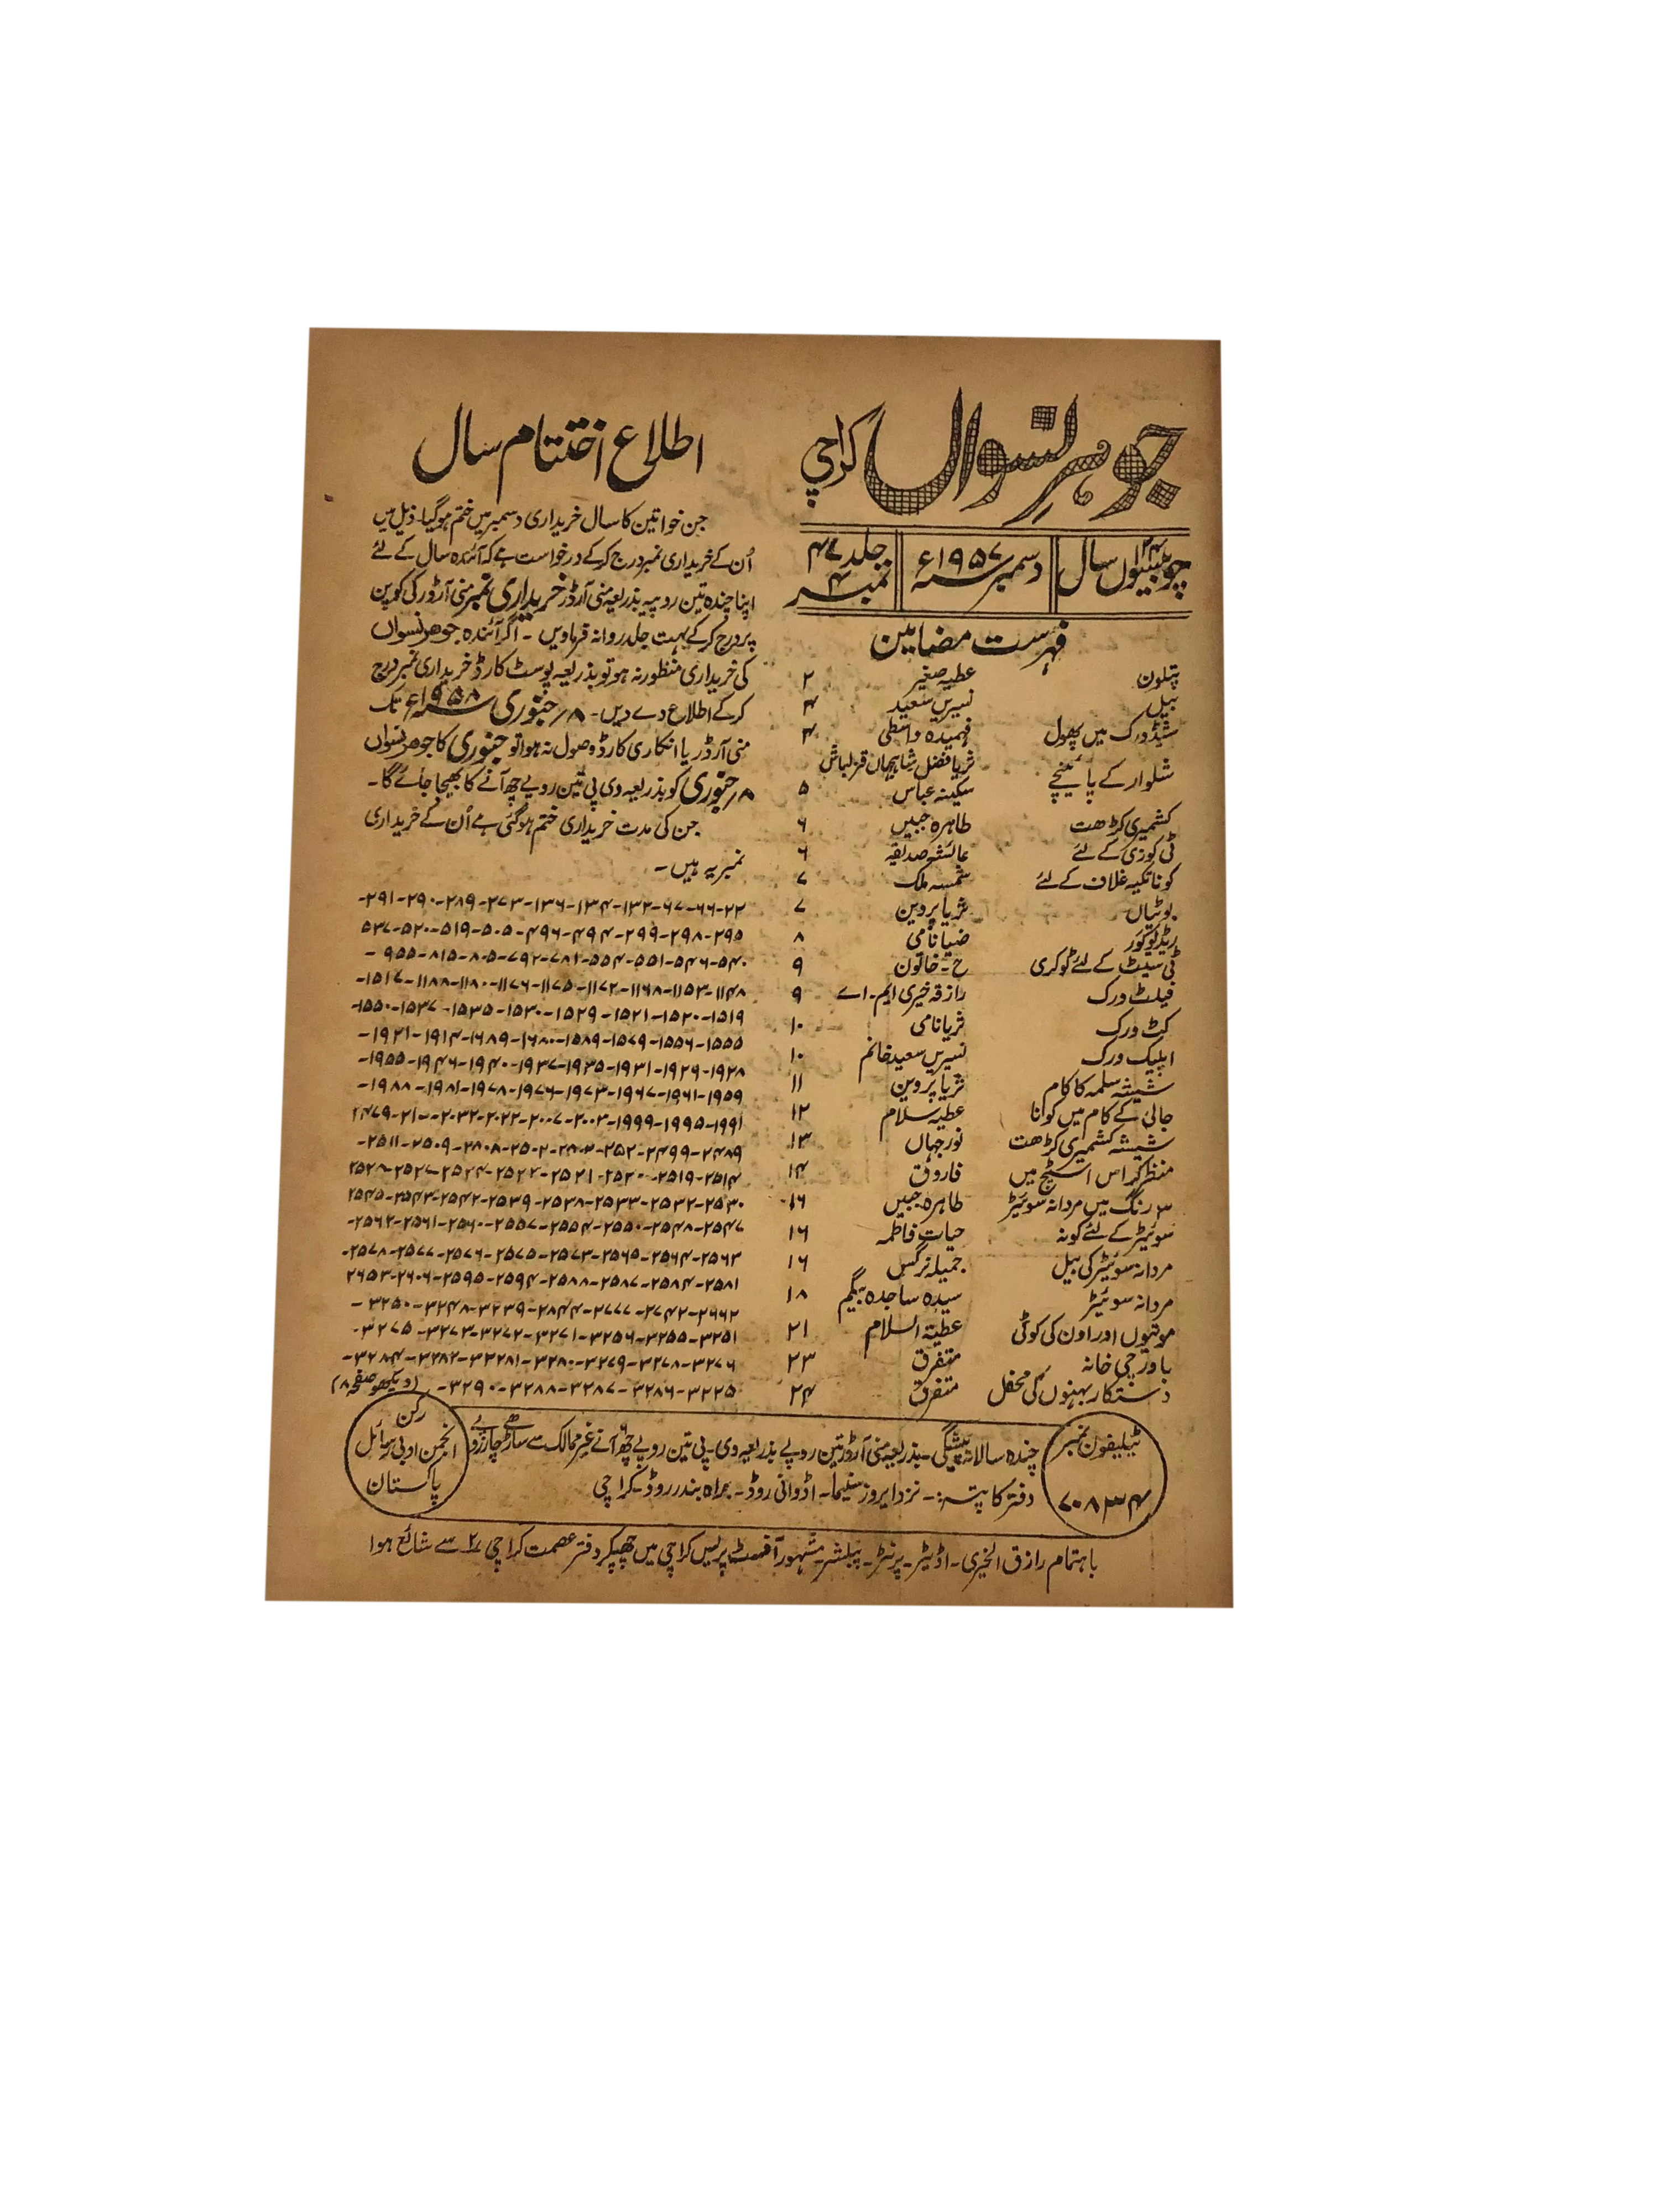 جوہرِ نسواں کراچی
چوبیسواں سال
دسمبر ۱۹۵۷ء
جلد ۴۷
نمبر ۴
فہرست مضامین
پتلون عطیہ صغیر ۲
بیل نسرین سعید ۴
شیڈورک میں پھول فہمیدہ واسطی ۴
ثریا فضل شاہجہاں قزلباش
شلوار کے پائینچے سکینہ عباس ۵
کشمیری کڑھت طاہرہ جبیں ۶
ٹی کوزی کے لئے عائشہ صدیقہ ۶
کونا تکیہ غلاف کے لئے شمسہ ملک ۷
بوٹیاں ثریا پروین ۷
ریڈیو کور ضیا نامی ۸
ٹی سیٹ کے لئے ٹوکری ح۔ خاتون ۹
فیلٹ ورک رازقہ خیری ایم۔ اے ۹
کٹ ورک ثریا نامی ۱۰
اپلیک ورک نسرین سعید خانم ۱۰
شیشہ سلمہ کا کام ثریا پروین ۱۱
جالی کے کام میں کونا عطیہ سلام ۱۲
شیشہ کشمیری کڑھت نور جہاں ۱۳
منظر کراس اسٹیچ میں فاروق ۱۴
۳ رنگ میں مردانہ سوئیٹر طاہرہ جبیں ۱۶
سوئیٹر کے لئے کونہ حیات فاطمہ ۱۶
مردانہ سوئیٹر کی بیل جمیلہ نرگس ۱۶
مردانہ سوئیٹر سیدہ ساجدہ بیگم ۱۸
موتیوں اور اون کی کوٹی عطیۃ السلام ۲۱
باورچی خانہ متفرق ۲۳
دستکار بہنوں کی محفل متفرق ۲۴
اطلاع اختتام سال
جن خواتین کا سال خریداری دسمبر میں ختم ہو گیا۔ ذیل میں
اُن کے خریداری نمبر درج کر کے درخواست ہے کہ آئندہ سال کے لئے
اپنا چندہ تین روپیہ بذریعہ منی آرڈر خریداری نمبر منی آرڈر کی کوپن
پر درج کر کے بہت جلد روانہ فرماویں۔ اگر آئندہ جوہر نسواں
کی خریداری منظور نہ ہو تو بذریعہ پوسٹ کارڈ خریداری نمبر درج
کر کے اطلاع دے دیں۔ ۸ جنوری ۱۹۵۸ء تک
منی آرڈر یا انکاری کارڈ وصول نہ ہوا تو جنوری کا جوہر نسواں
۸ جنوری کو بذریعہ وی پی تین روپے چھ آنے کا بھیجا جائے گا۔
جن کی مدت خریداری ختم ہو گئی ہے اُن کے خریداری
نمبر یہ ہیں۔
۲۲-۶۶-۶۷-۱۳۲-۱۳۴-۱۳۶-۲۷۳-۲۸۹-۲۹۰-۲۹۱-
۲۹۵-۲۹۸-۲۹۹-۴۹۴-۴۹۶-۵۰۵-۵۱۹-۵۲۰-۵۳۷
۵۴۰-۵۴۶-۵۵۱-۵۵۴-۷۸۱-۷۹۲-۸۰۵-۸۱۵-۹۵۵-
۱۱۴۸-۱۱۵۳-۱۱۶۸-۱۱۷۲-۱۱۷۵-۱۱۷۶-۱۱۸۰-۱۱۸۸-۱۵۱۷-
۱۵۱۹-۱۵۲۰-۱۵۲۱-۱۵۲۹-۱۵۳۰-۱۵۳۵-۱۵۳۷-۱۵۵۰-
۱۵۵۵-۱۵۵۶-۱۵۷۹-۱۵۸۹-۱۶۸۰-۱۶۸۹-۱۹۱۴-۱۹۲۱-
۱۹۲۸-۱۹۲۹-۱۹۳۱-۱۹۳۵-۱۹۳۷-۱۹۴۰-۱۹۴۶-۱۹۵۵-
۱۹۵۹-۱۹۶۱-۱۹۶۷-۱۹۷۳-۱۹۷۶-۱۹۷۸-۱۹۸۱-۱۹۸۸-
۱۹۹۱-۱۹۹۵-۱۹۹۹-۲۰۰۳-۲۰۰۷-۲۰۲۲-۲۰۳۲-۲۱۰۰-۲۴۷۹
۲۴۸۹-۲۴۹۹-۲۵۲-۲۵۰۲-۲۵۰۹-۲۵۱۱-
۲۵۱۴-۲۵۱۹-۲۵۲۰-۲۵۲۱-۲۵۲۲-۲۵۲۴-۲۵۲۷-۲۵۲۸
۲۵۳۰-۲۵۳۲-۲۵۳۳-۲۵۳۸-۲۵۳۹-۲۵۴۲-۲۵۴۳-۲۵۴۵
۲۵۴۷-۲۵۴۸-۲۵۵۰-۲۵۵۴-۲۵۵۷-۲۵۶۰-۲۵۶۱-۲۵۶۲-
۲۵۶۳-۲۵۶۴-۲۵۶۵-۲۵۷۳-۲۵۷۵-۲۵۷۶-۲۵۷۷-۲۵۷۸-
۲۵۸۱-۲۵۸۴-۲۵۸۷-۲۵۸۸-۲۵۹۴-۲۵۹۵-۲۶۰۶-۲۶۵۳
۲۶۶۲-۲۷۴۲-۲۷۷۷-۲۸۴۴-۳۲۳۹-۳۲۴۸-۳۲۵۰-
۳۲۵۱-۳۲۵۵-۳۲۵۶-۳۲۷۱-۳۲۷۲-۳۲۷۳-۳۲۷۵-
۳۲۷۶-۳۲۷۸-۳۲۷۹-۳۲۸۰-۳۲۸۱-۳۲۸۲-۳۲۸۴-
۳۲۲۵-۳۲۸۶-۳۲۸۷-۳۲۸۸-۳۲۹۰- (دیکھو صفحہ ۸)
ٹیلیفون نمبر
۷۰۸۳۴
چندہ سالانہ پیشگی۔ بذریعہ منی آرڈر تین روپے بذریعہ وی۔ پی تین روپے چھ آنے غیر ممالک سے ساڑھے چار روپے
دفتر کا پتہ:۔ نزد ایروز سنیما۔ اڈوانی روڈ۔ براہ بندر روڈ۔ کراچی
رکن
انجمن ادبی رسائل
پاکستان
باہتمام رازق الخیری۔ اڈیٹر۔ پرنٹر۔ پبلشر۔ مشہور آفسٹ پریس کراچی میں چھپکر دفتر عصمت کراچی ۲ سے شائع ہوا